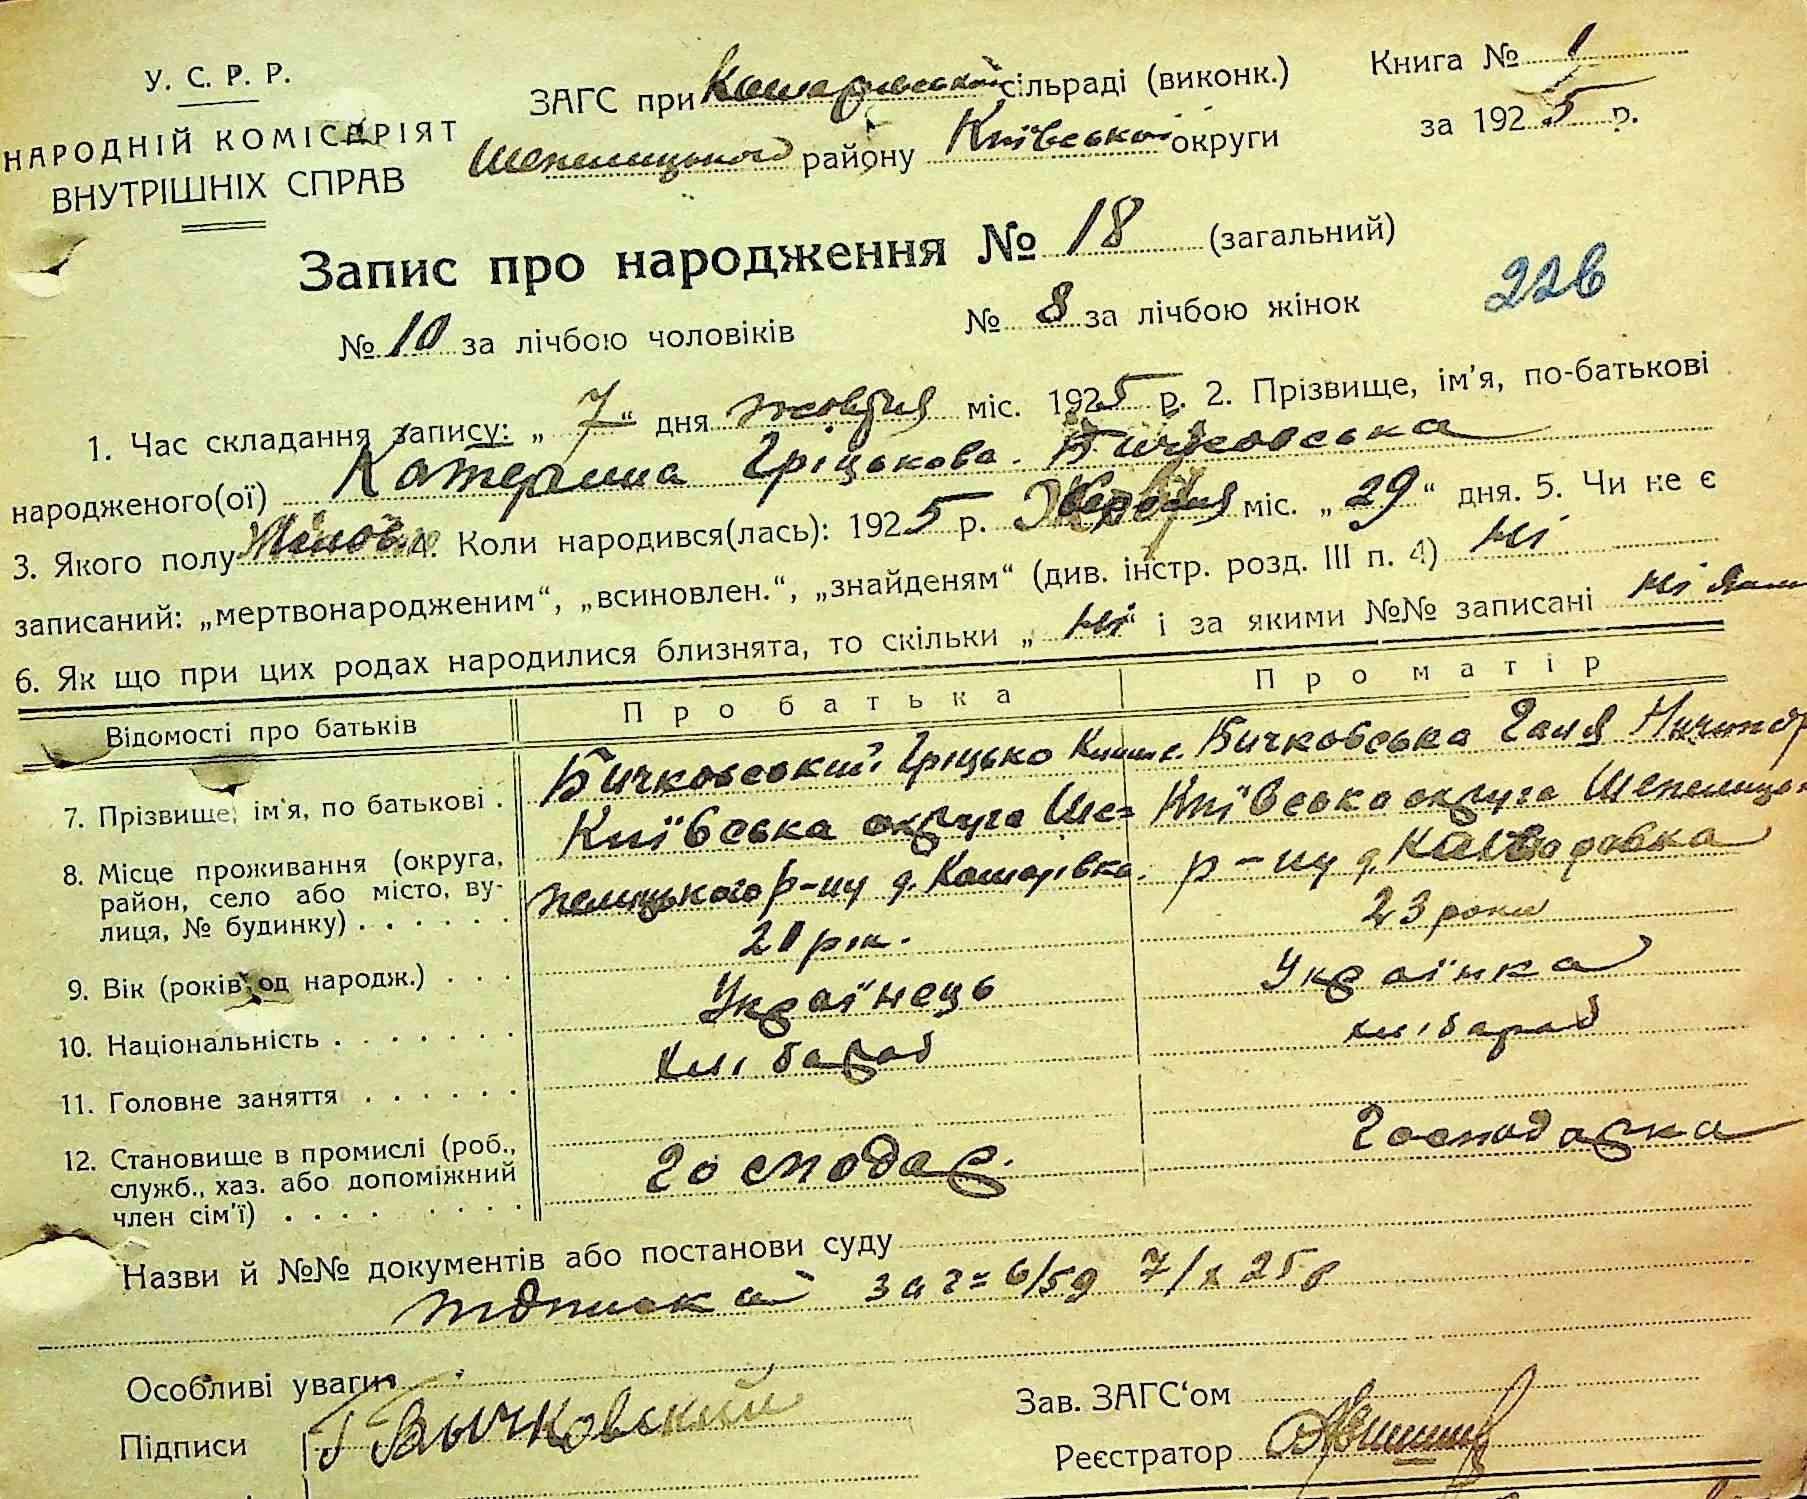 У. С. Р. Р.
НАРОДНІЙ КОМІСАРІЯТ
ВНУТРІШНІХ СПРАВ
ЗАГС при Кошарівській сільраді (виконк.)
Шепелицького району Київської округи
Книга № 1
за 1925 р.
Запис про народження № 18 (загальний)
№ 10 за лічбою чоловіків № 8 за лічбою жінок
22в
1. Час складання запису: „ 7 “ дня жовтня міс. 1925 р. 2. Прізвище, ім'я, по-батькові
народженого(ої) Катерина Гріцькова Бичковська
3. Якого полу 4. Коли народився(лась): 1925 р. міс. „ 29 “ дня. 5. Чи не є
записаний: „мертвонародженим“, „всиновлен.“, „знайденям“ (див. інстр. розд. III п. 4) Ні
6. Як що при цих родах народилися близнята, то скільки „ Ні “ і за якими №№ записані Ні
Відомості про батьків Про батька Про матір
7. Прізвище, ім'я, по батькові . Бичковський Гріцько Бичковська Галя Ничипор
8. Місце проживання (округа, район, село або місто, вулиця, № будинку) . . . . . .
Київська округа Шепелицького р-ну д. Кошарівка
Київська округа Шепелицьк р-ну д. Кашоровка
9. Вік (років од народж.) . . . 20 рік. 23 роки
10. Національність . . . . . . . Українець Українка
11. Головне заняття . . . . . . хлібароб хлібароб
12. Становище в промислі (роб., служб., хаз. або допоміжний член сім'ї) . . . . Господар. Господарка
Назви й №№ документів або постанови суду
6/59 7/X 25 р
Особливі уваги
Підписи Г Бычковский
Зав. ЗАГС‘ом
Реєстратор